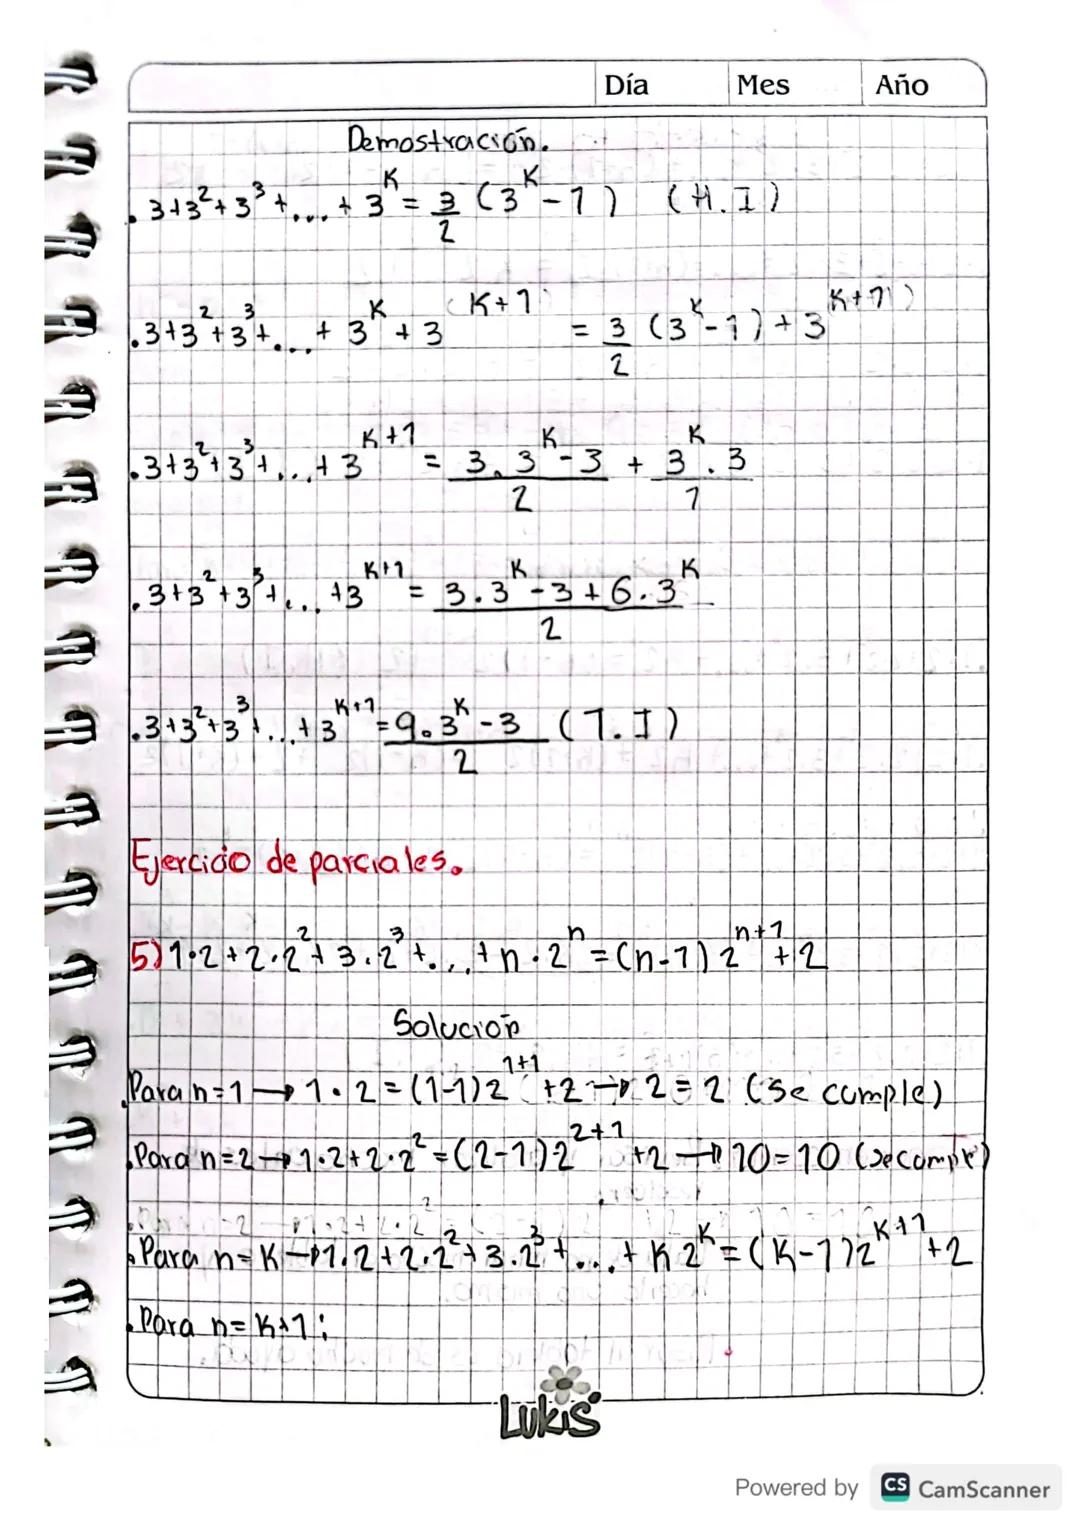 Día Mes Año
Demostración.
. 3+3²+3³+...+3^K = 3/2 (3^K-1) (H.I)
. 3+3²+3³+...+3^K+3^(K+1) = 3/2 (3^K-1)+3^(K+1)
. 3+3²+3³+...+3^(K+1) = (3.3^K-3)/2 + (3^K.3)/1
. 3+3²+3³+...+3^(K+1) = (3.3^K-3+6.3^K)/2
. 3+3²+3³+...+3^(K+1) = (9.3^K-3)/2 (T.I)
Ejercicio de parciales.
5) 1·2+2·2²+3·2³+...+n·2^n = (n-1)2^(n+1)+2
Solución
. Para n=1 → 1·2 = (1-1)2^(1+1)+2 → 2=2 (se cumple)
. Para n=2 → 1·2+2·2² = (2-1)2^(2+1)+2 → 10=10 (se cumple)
. Para n=K → 1·2+2·2²+3·2³+...+K2^K = (K-1)2^(K+1)+2
. Para n=K+1:
Lukis
Powered by CS CamScanner